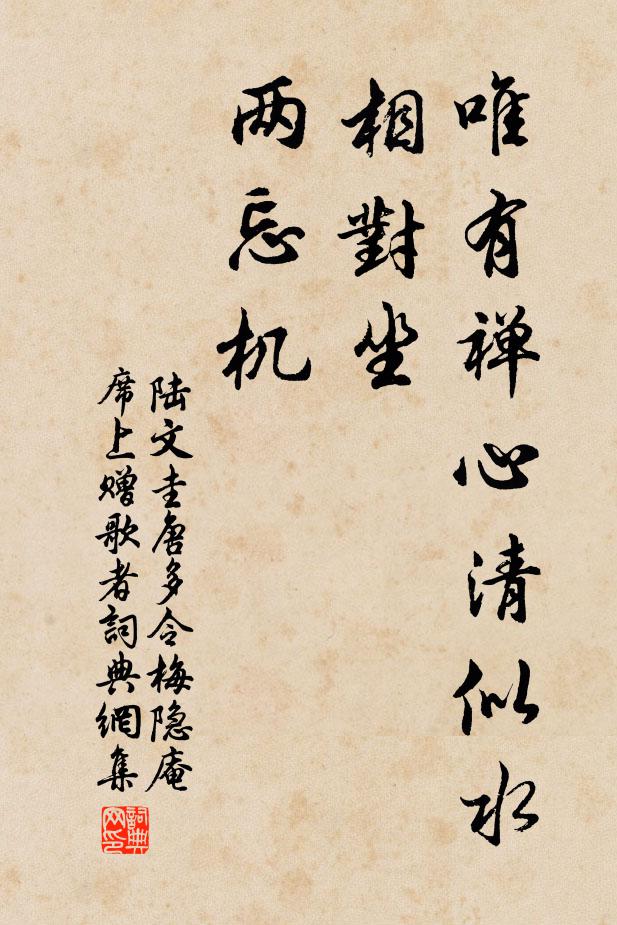 唯有禅心清似水
相對坐
两忘机
陆文圭唐多令梅隐庵
席上赠歌者詞典網集
詞典
网印